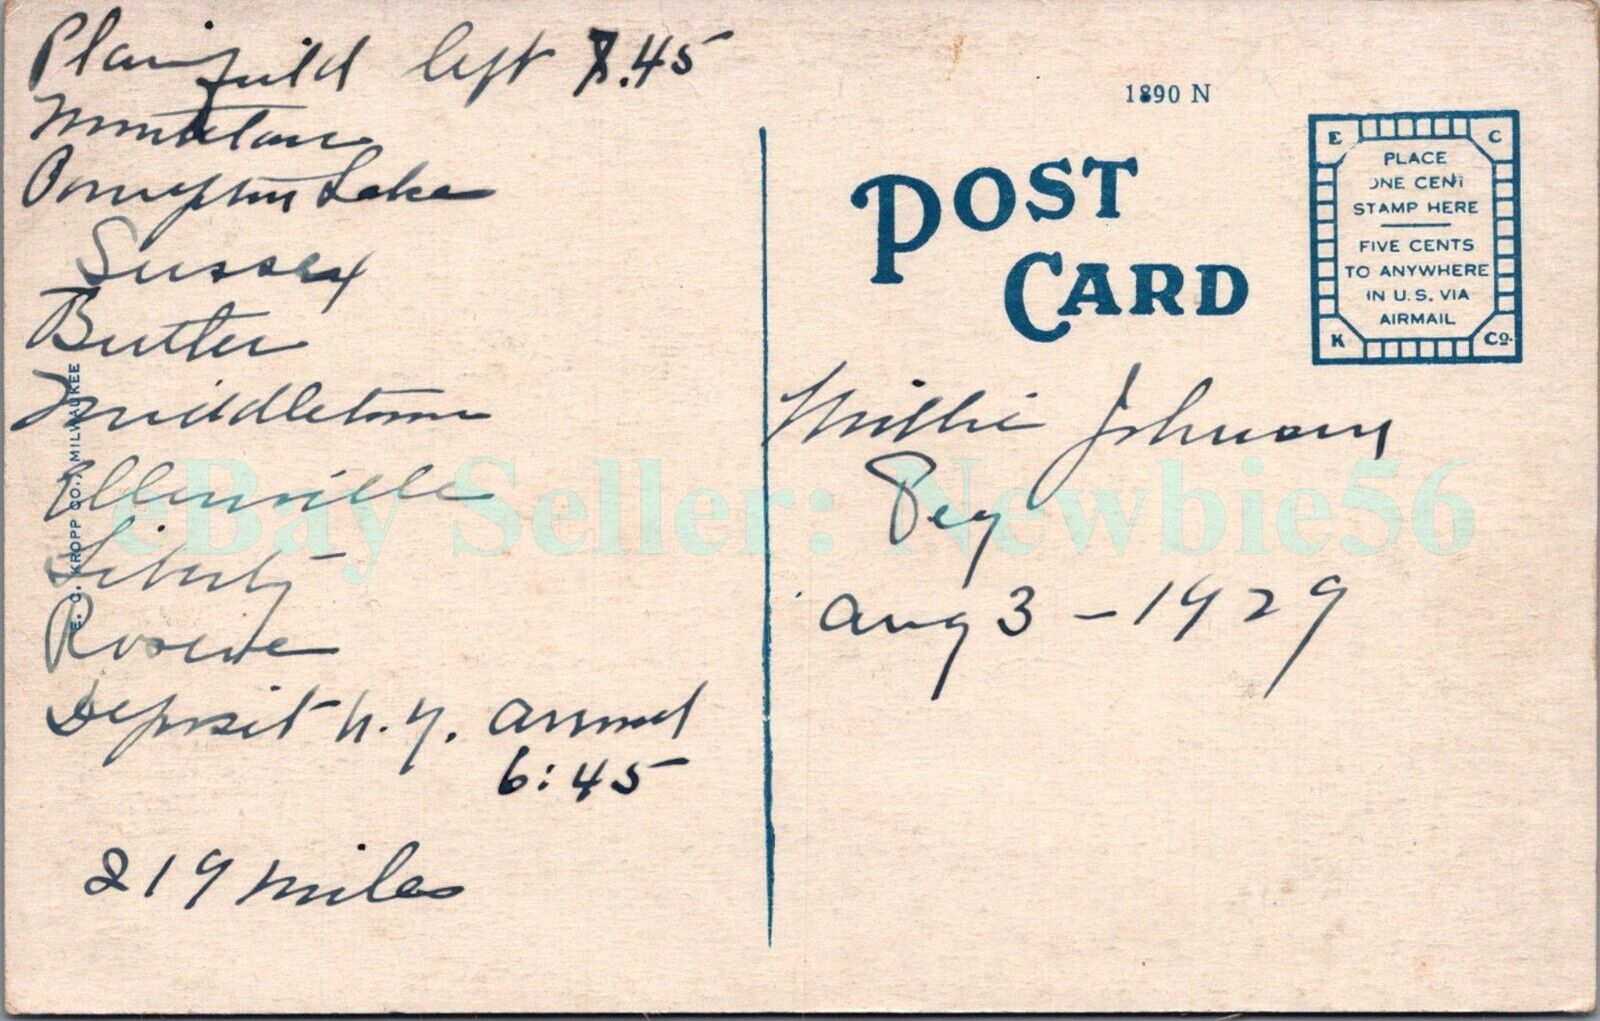 Plainfield left 7.45
Montclair
Pompton Lake
Sussex
Butler
Middletown
Ellenville
Liberty
Roscoe
Deposit N.Y. arrived
6:45
219 miles
E. C. KROPP CO., MILWAUKEE
1890 N
POST
CARD
E C
PLACE
ONE CENT
STAMP HERE
FIVE CENTS
TO ANYWHERE
IN U.S. VIA
AIRMAIL
K Co.
Millie Johnson
Peg
Aug 3 - 1929
eBay Seller: Newbie56